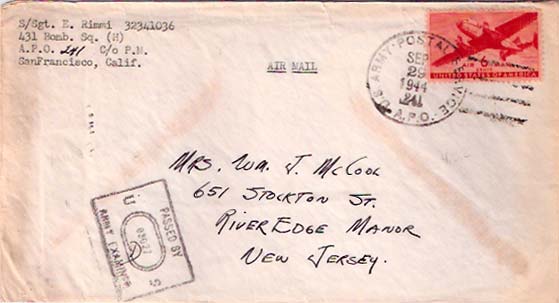 S/Sgt. E. Rimmi 32341036
431 Bomb. Sq. (H)
A.P.O. 241 C/o P.M.
SanFrancisco, Calif.
AIR MAIL
U.S. ARMY POSTAL SERVICE
SEP
29
1944
241
A.P.O.
6
AIR CENTS MAIL
UNITED STATES OF AMERICA
Mrs. Wm. J. McCool
651 Stockton St.
River Edge Manor
New Jersey.
PASSED BY
U.S.
ARMY EXAMINER